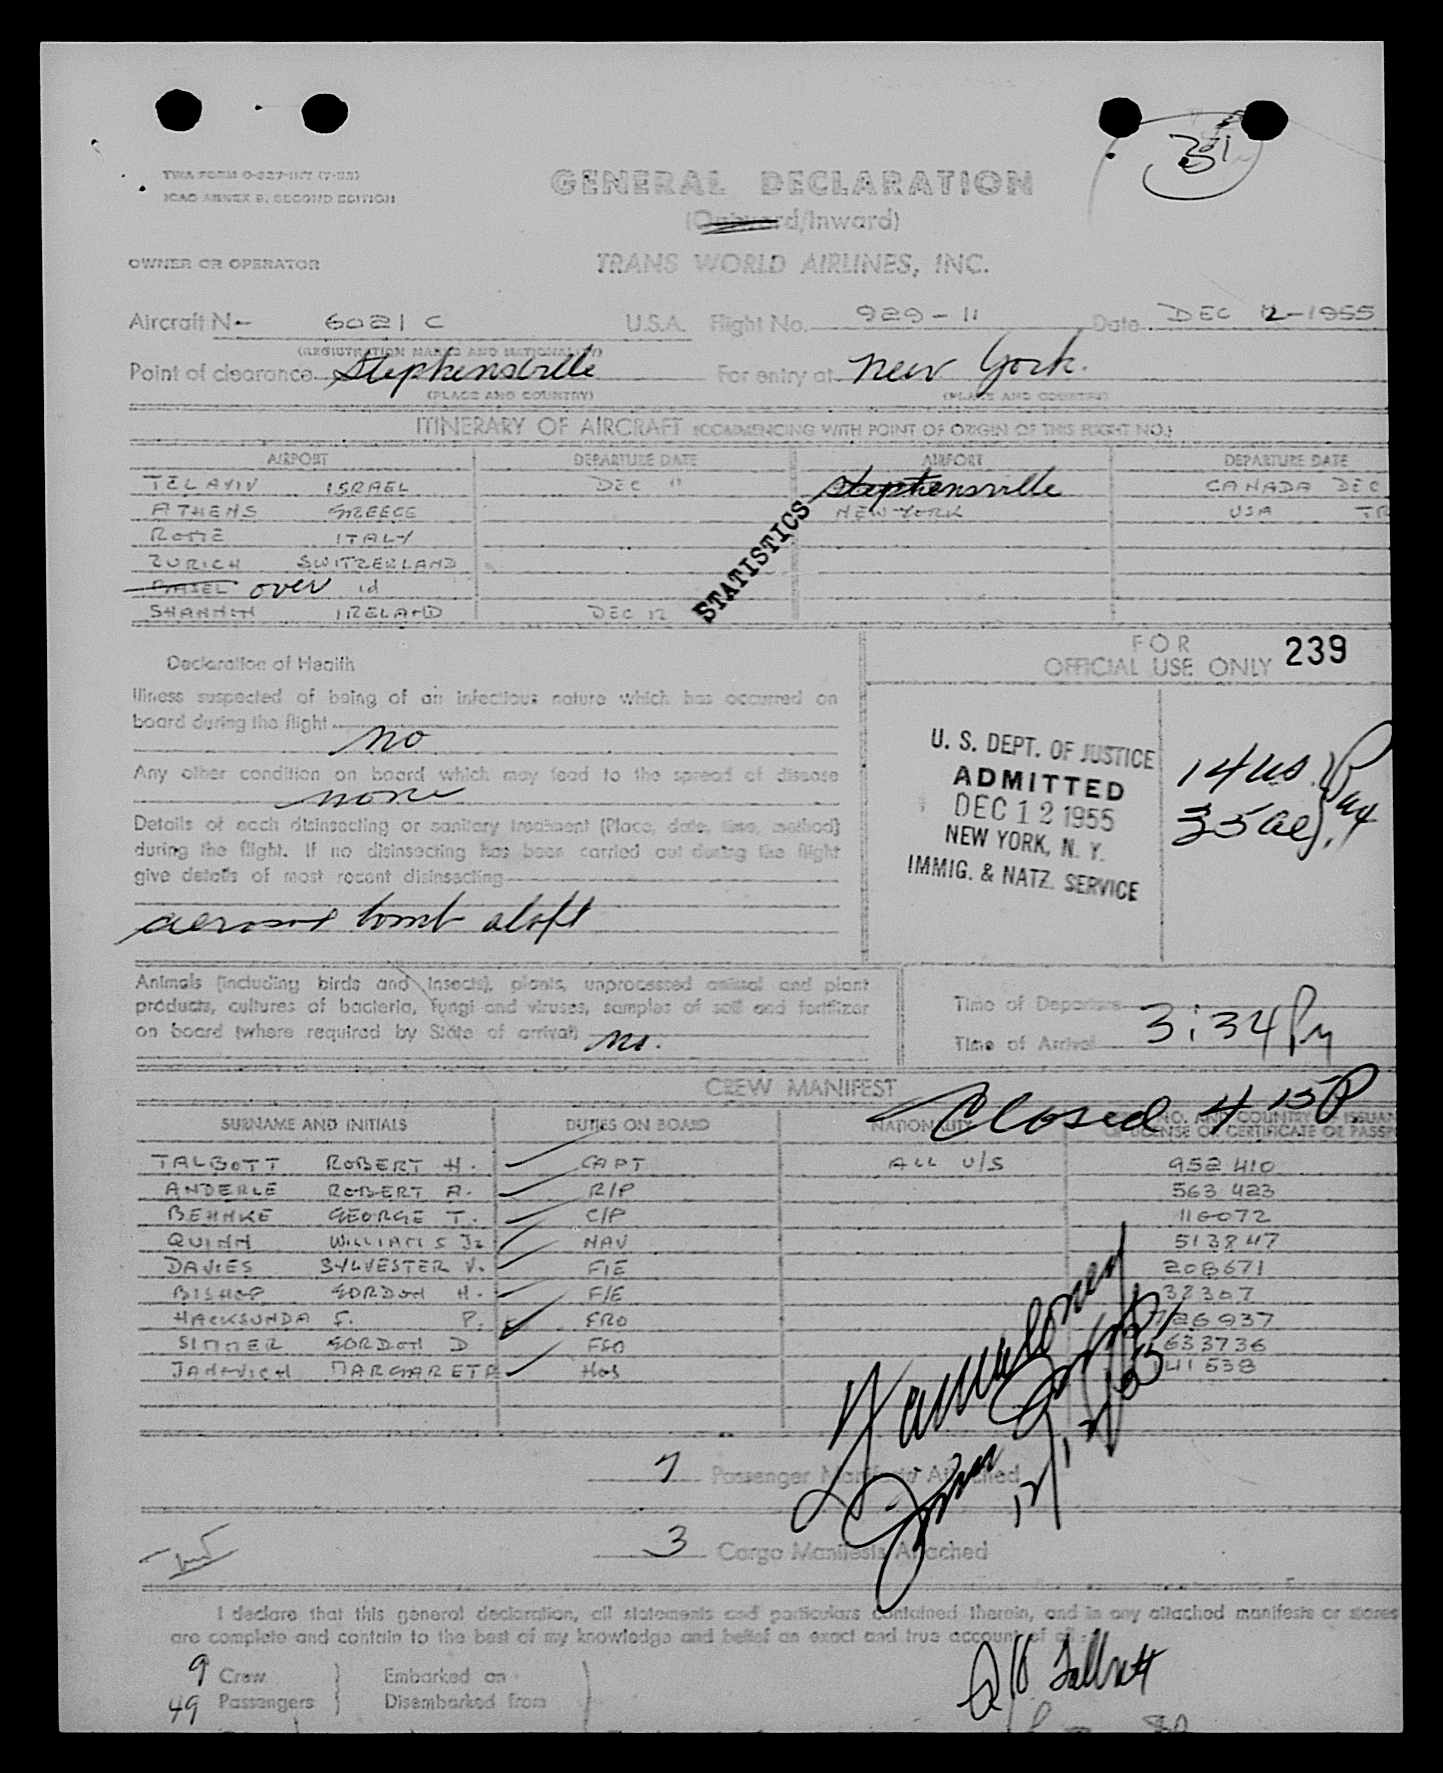 351
TWA FORM O-327-INT (7-55)
ICAO ANNEX 9, SECOND EDITION
GENERAL DECLARATION
(Outward/Inward)
OWNER OR OPERATOR TRANS WORLD AIRLINES, INC.
Aircraft N- 6021 C U.S.A. Flight No. 929-11 Date DEC 12-1955
(REGISTRATION MARKS AND NATIONALITY)
Point of clearance Stephensville For entry at New York.
(PLACE AND COUNTRY) (PLACE AND COUNTRY)
ITINERARY OF AIRCRAFT (COMMENCING WITH POINT OF ORIGIN OF THIS FLIGHT NO.)
AIRPORT DEPARTURE DATE AIRPORT DEPARTURE DATE
TEL AVIV ISRAEL DEC 11 Stephensville CANADA DEC
ATHENS GREECE NEW YORK USA TR
ROME ITALY
ZURICH SWITZERLAND
BASEL over id
SHANNON IRELAND DEC 12
STATISTICS
FOR
OFFICIAL USE ONLY 239
Declaration of Health
Illness suspected of being of an infectious nature which has occurred on
board during the flight
no
Any other condition on board which may lead to the spread of disease
none
Details of each disinsecting or sanitary treatment (Place, date, time, method)
during the flight. If no disinsecting has been carried out during the flight
give details of most recent disinsecting
aerosol bomb aloft
U. S. DEPT. OF JUSTICE
ADMITTED
DEC 12 1955
NEW YORK, N. Y.
IMMIG. & NATZ. SERVICE
14 us
35 al
Animals (including birds and insects), plants, unprocessed animal and plant
products, cultures of bacteria, fungi and viruses, samples of soil and fertilizer
on board (where required by State of arrival) no.
Time of Departure
Time of Arrival 3:34 Pm
CREW MANIFEST
Closed 4 15P
SURNAME AND INITIALS DUTIES ON BOARD NATIONALITY NO. AND COUNTRY OF ISSUAN
OF LICENSE OR CERTIFICATE OR PASSP
TALBOTT ROBERT H. CAPT ALL U/S 952 410
ANDERLE ROBERT A. R/P 563 423
BEHNKE GEORGE T. C/P 116072
QUINN WILLIAM S Jr NAV 513847
DAVIES SYLVESTER V. F/E 208671
BISHOP GORDON H. F/E 32307
HACKSUNDA F. P. FRO 726937
SIMMER GORDON D FSO 633736
JANOVICH MARGARETA Hos 41538
7 Passenger Manifests Attached
3 Cargo Manifests Attached
I declare that this general declaration, all statements and particulars contained therein, and in any attached manifests or stores
are complete and contain to the best of my knowledge and belief an exact and true account of all
9 Crew Embarked on
49 Passengers Disembarked from
R H Talbott